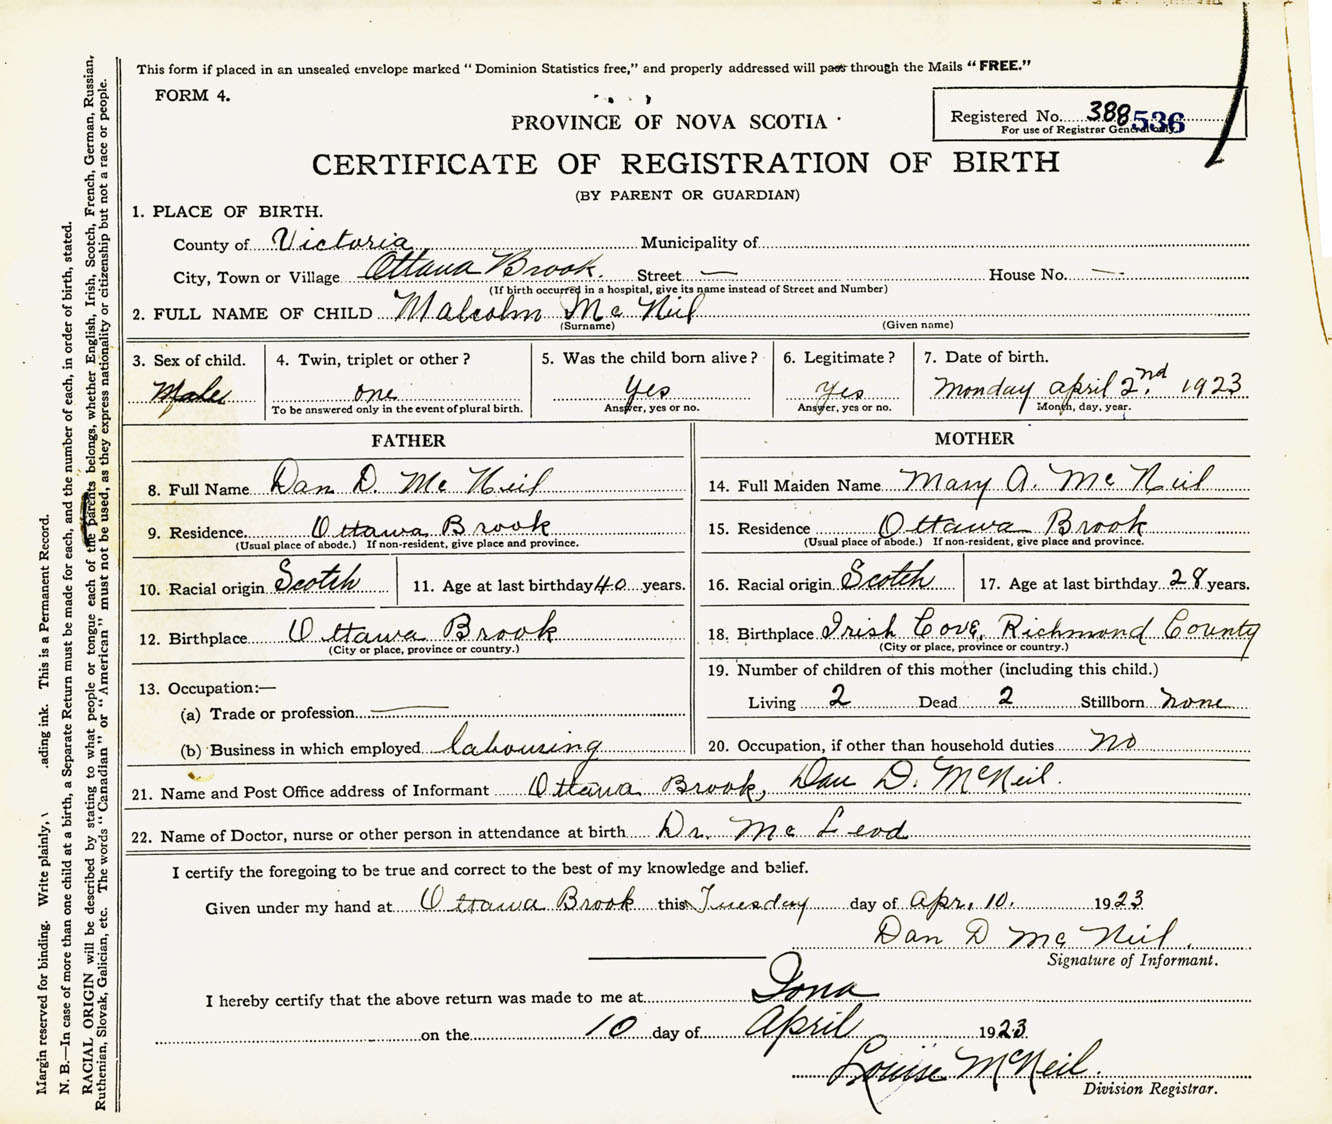 This form if placed in an unsealed envelope marked "Dominion Statistics free," and properly addressed will pass through the Mails "FREE."
FORM 4.
PROVINCE OF NOVA SCOTIA
Registered No. 388 536
For use of Registrar General only.
CERTIFICATE OF REGISTRATION OF BIRTH
(BY PARENT OR GUARDIAN)
1. PLACE OF BIRTH.
County of Victoria Municipality of
City, Town or Village Ottawa Brook. Street — House No. —
(If birth occurred in a hospital, give its name instead of Street and Number)
2. FULL NAME OF CHILD Malcolm Mc Neil
(Surname) (Given name)
3. Sex of child. 4. Twin, triplet or other? 5. Was the child born alive? 6. Legitimate? 7. Date of birth.
Male one Yes Yes Monday April 2nd. 1923
To be answered only in the event of plural birth. Answer, yes or no. Answer, yes or no. Month, day, year.
FATHER MOTHER
8. Full Name Dan D. Mc Neil 14. Full Maiden Name Mary A. Mc Neil
9. Residence Ottawa Brook 15. Residence Ottawa Brook
(Usual place of abode.) If non-resident, give place and province. (Usual place of abode.) If non-resident, give place and province.
10. Racial origin Scotch 11. Age at last birthday 40 years. 16. Racial origin Scotch 17. Age at last birthday 28 years.
12. Birthplace Ottawa Brook 18. Birthplace Irish Cove, Richmond County
(City or place, province or country.) (City or place, province or country.)
19. Number of children of this mother (including this child.)
13. Occupation:—
(a) Trade or profession — Living 2 Dead 2 Stillborn none
(b) Business in which employed labouring 20. Occupation, if other than household duties No
21. Name and Post Office address of Informant Ottawa Brook, Dan D. McNeil.
22. Name of Doctor, nurse or other person in attendance at birth Dr. Mc Leod
I certify the foregoing to be true and correct to the best of my knowledge and belief.
Given under my hand at Ottawa Brook this Tuesday day of Apr, 10. 1923
Dan D Mc Neil.
Signature of Informant.
I hereby certify that the above return was made to me at Iona
on the 10 day of April 1923
Louise McNeil.
Division Registrar.
Margin reserved for binding. Write plainly, ading ink. This is a Permanent Record.
N. B.—In case of more than one child at a birth, a Separate Return must be made for each, and the number of each, in order of birth, stated.
RACIAL ORIGIN will be described by stating to what people or tongue each of the parents belongs, whether English, Irish, Scotch, French, German, Russian,
Ruthenian, Slovak, Galician, etc. The words "Canadian" or "American" must not be used, as they express nationality or citizenship but not a race or people.